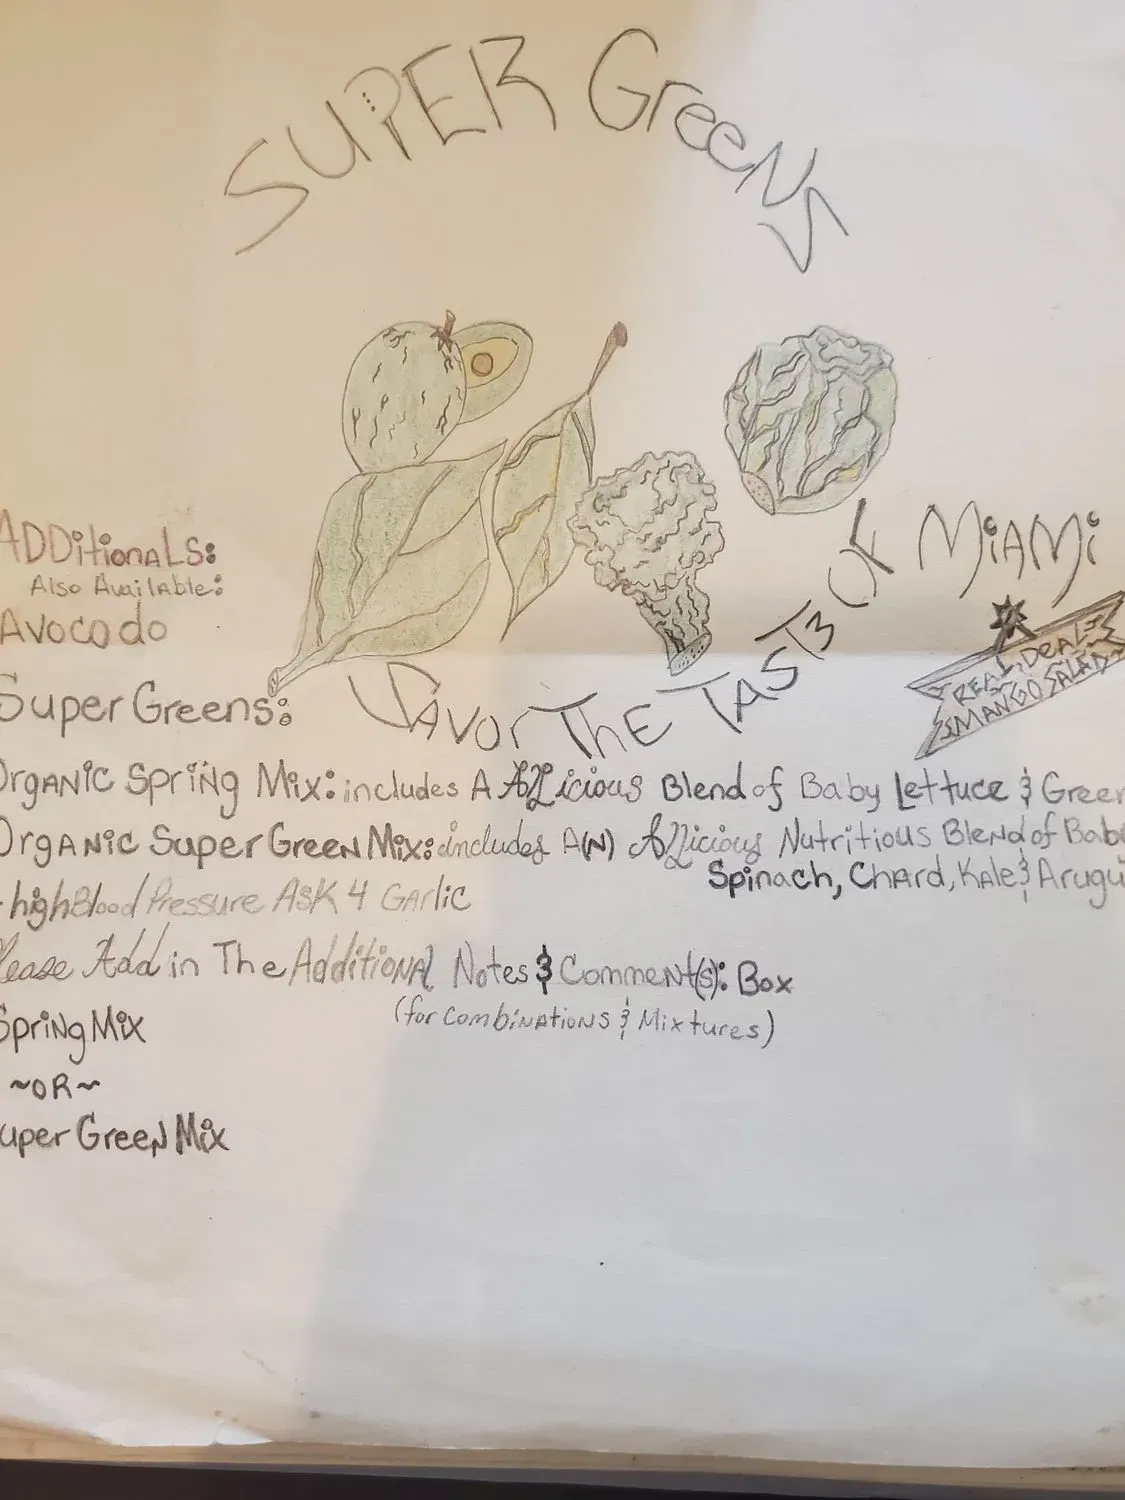 SUPER GreeNS
SAVOR THE TASTE OF MIAMI
REAL DEAL
MANGO SALAD
ADDitionaLS:
Also Available:
Avocado
Super Greens:
OrgANiC SpriNg Mix: includes A Blend of Baby Lettuce & Green
OrgANiC Super GreeN Mix: includes A(N) Nutritious BleNd of Baby
Spinach, Chard, Kale & Arugu
-high Blood Pressure ASK 4 GArlic
Please Add in The AdditioNAL Notes & CommeNt(s): Box
(for CombiNAtioNS & Mixtures)
SpriNg Mix
~OR~
Super GreeN Mix